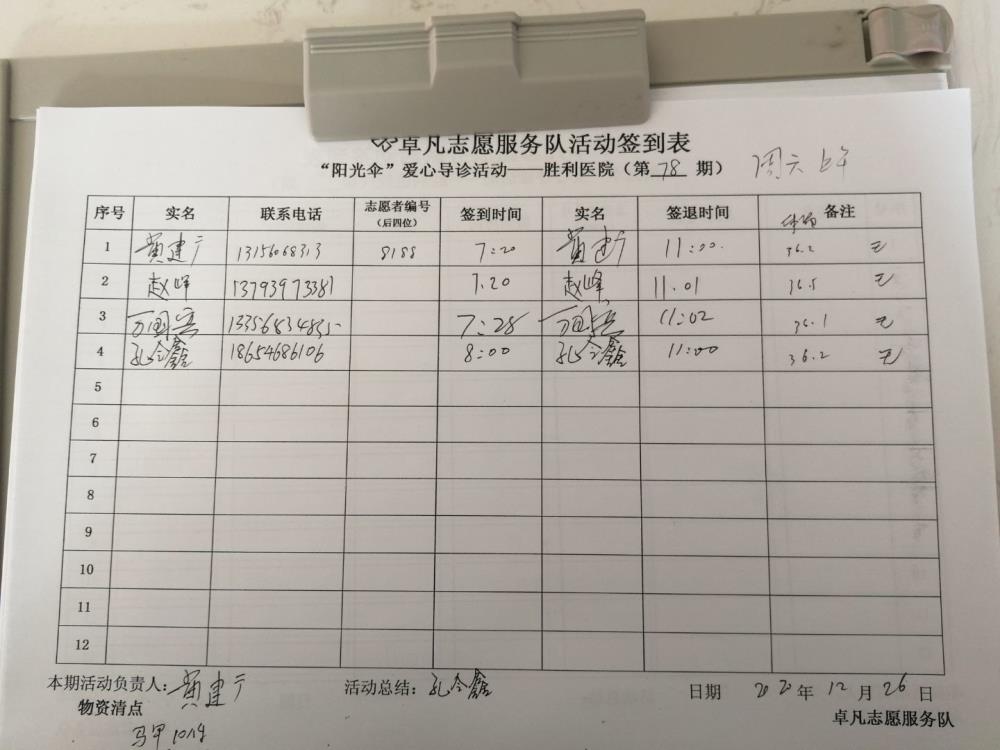 卓凡志愿服务队活动签到表
“阳光伞”爱心导诊活动——胜利医院（第 78 期） 周六上午
序号 实名 联系电话 志愿者编号（后四位） 签到时间 实名 签退时间 体温 备注
1 黄建广 13156068313 8188 7:20 黄建广 11:00. 36.2 无
2 赵峰 13793973387 7.20 赵峰 11.01 36.5 无
3 7:28 11:02 36.1 无
4 孔令鑫 18654686106 8:00 孔令鑫 11:00 36.2 无
5
6
7
8
9
10
11
12
本期活动负责人：黄建广 活动总结：孔令鑫 日期 2020 年 12 月 26 日
物资清点 卓凡志愿服务队
马甲10件